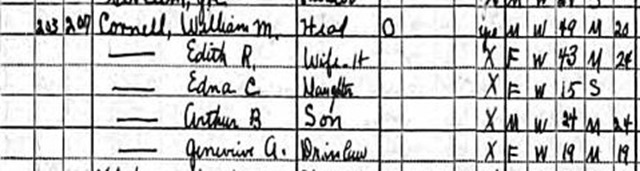 203 207 Cornell, William M. Head O yes M W 49 M 20
— Edith R. Wife-H X F W 43 M 24
— Edna C Daughter X F W 15 S
— Arthur B Son X M W 24 M 24
— Genevive A. X F W 19 M 19